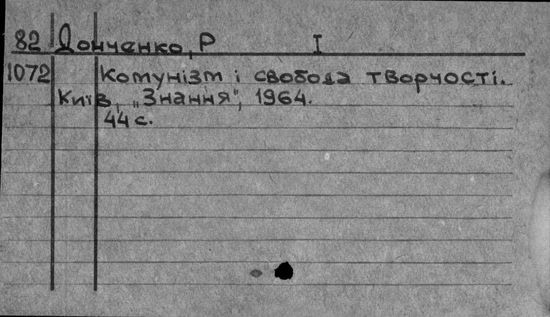 82 Донченко, Р I
1072 Комунізм і свобода творчості.
Київ, „Знання", 1964.
44 с.